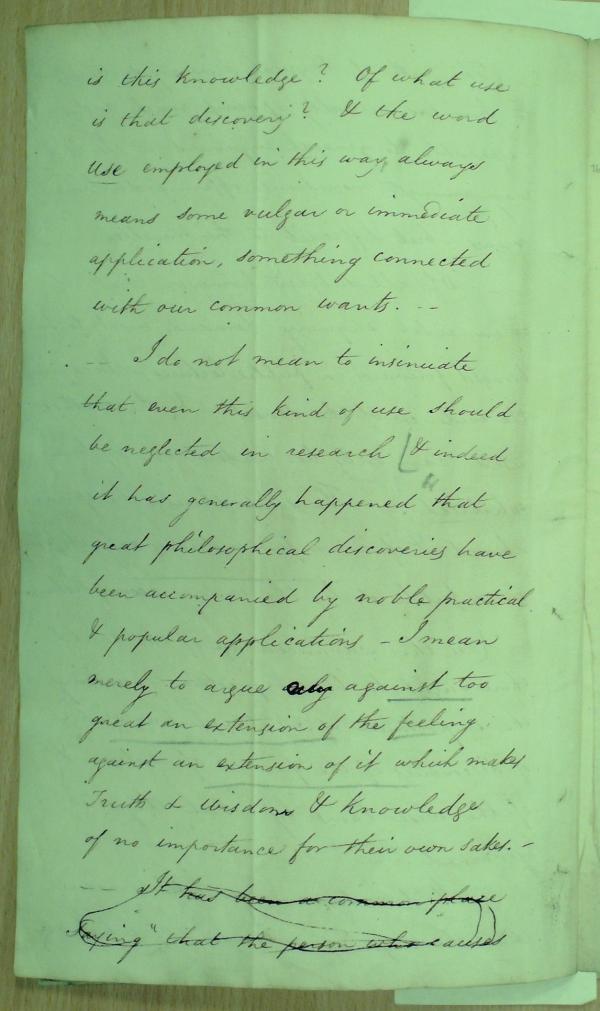 is this knowledge? Of what use
is that discovery? & the word
use employed in this way, always
means some vulgar or immediate
application, something connected
with our common wants. --
-- I do not mean to insinuate
that even this kind of use should
be neglected in research [& indeed
it has generally happened that
great philosophical discoveries have
been accompanied by noble practical
& popular applications - I mean
merely to argue against too
great an extension of the feeling
against an extension of it which makes
Truth & Wisdom & Knowledge
of no importance for their own sakes. -
-- It has been a common place
Saying" that the person who causes